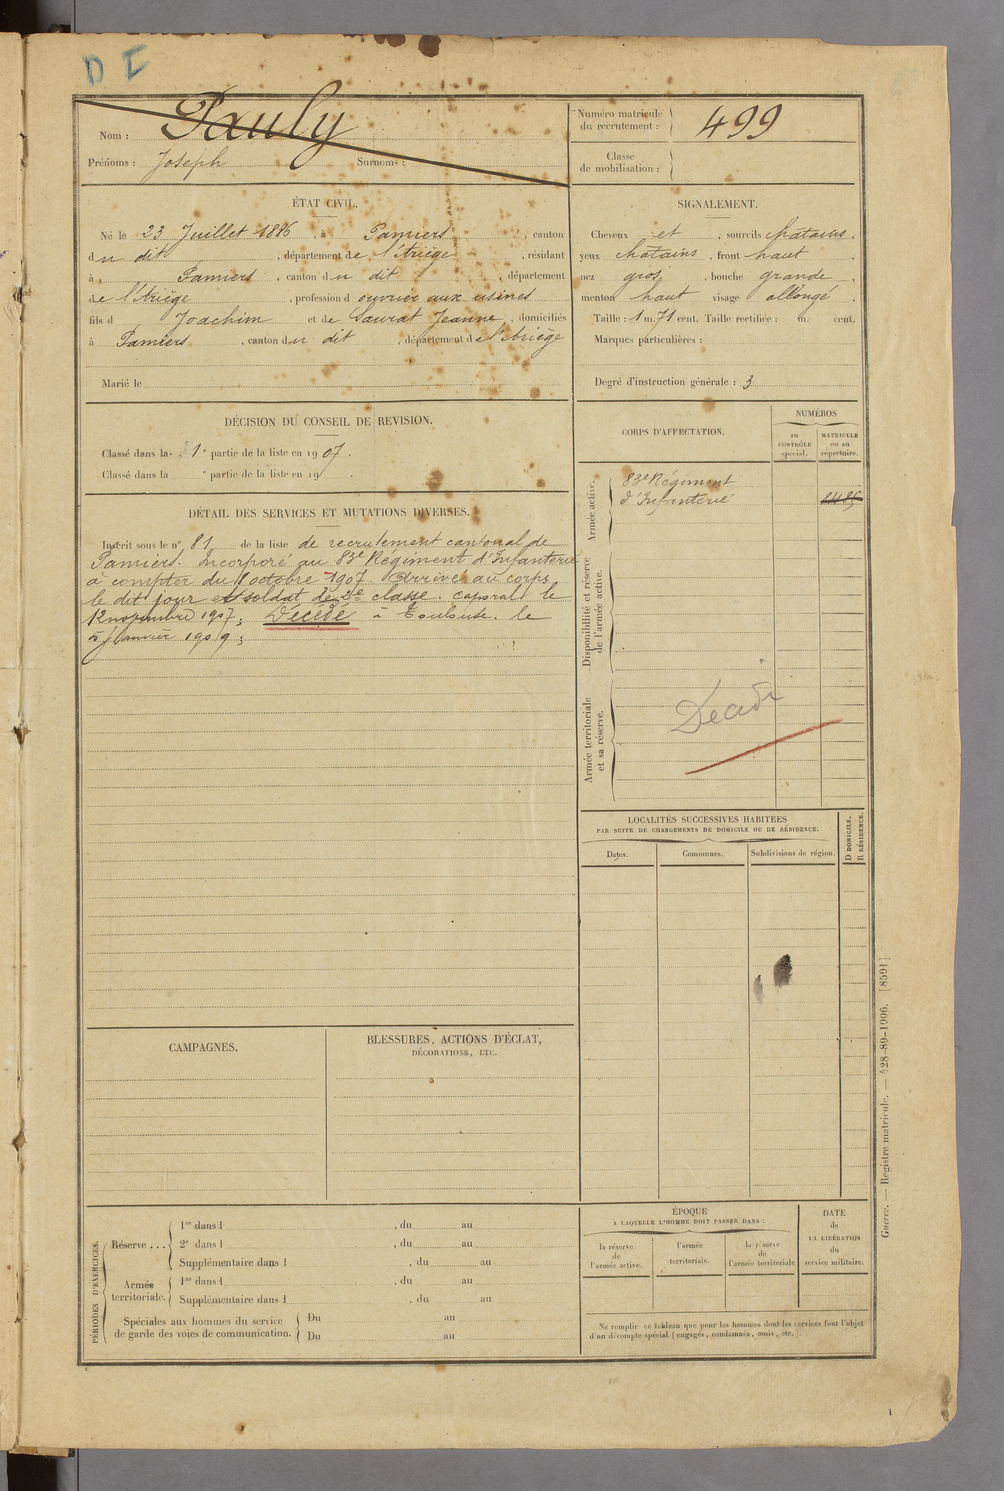 D I
Nom : Pauly
Prénoms : Joseph Surnoms :
Numéro matricule
du recrutement : 499
Classe
de mobilisation :
ÉTAT CIVIL.
Né le 23 Juillet 1886, à Pamiers, canton
du dit, département de l'Ariège, résidant
à Pamiers, canton du dit, département
de l'Ariège, profession d ouvrier aux usines
fils d Joachim et de Saurat Jeanne, domiciliés
à Pamiers, canton du dit, département de l'Ariège
Marié le
SIGNALEMENT.
Cheveux et, sourcils châtains.
yeux châtains, front haut,
nez gros, bouche grande,
menton haut visage allongé.
Taille : 1 m. 71 cent. Taille rectifiée : m. cent.
Marques particulières :
Degré d'instruction générale : 3
DÉCISION DU CONSEIL DE REVISION.
Classé dans la 1e partie de la liste en 1907.
Classé dans la e partie de la liste en 19
DÉTAIL DES SERVICES ET MUTATIONS DIVERSES.
Inscrit sous le n° 81 de la liste de recrutement cantonal de
Pamiers. Incorporé au 83e Régiment d'Infanterie
à compter du octobre 1907. Arrivé au corps
le dit jour et soldat de 2e classe. caporal le
12 novembre 1907; Décédé à Toulouse. le
5 Janvier 1909;
CORPS D'AFFECTATION.
NUMÉROS
au
CONTRÔLE
spécial.
MATRICULE
ou au
répertoire.
Armée active.
83e Régiment
d'Infanterie
Disponibilité et réserve
de l'armée active.
Armée territoriale
et sa réserve.
Décédé
LOCALITÉS SUCCESSIVES HABITÉES
PAR SUITE DE CHANGEMENTS DE DOMICILE OU DE RÉSIDENCE.
D DOMICILE.
R RÉSIDENCE.
Dates.
Communes.
Subdivisions de région.
CAMPAGNES.
BLESSURES, ACTIONS D'ÉCLAT,
DÉCORATIONS, ETC.
PÉRIODES D'EXERCICES.
Réserve ...
1re dans l , du au
2e dans l , du au
Supplémentaire dans l , du au
Armée
territoriale.
1re dans l , du au
Supplémentaire dans l , du au
Spéciales aux hommes du service
de garde des voies de communication.
Du au
Du au
ÉPOQUE
À LAQUELLE L'HOMME DOIT PASSER DANS :
la réserve
de
l'armée active.
l'armée
territoriale.
la réserve
de
l'armée territoriale
DATE
de
LA LIBÉRATION
du
service militaire.
Ne remplir ce tableau que pour les hommes dont les services font l'objet
d'un décompte spécial (engagés, condamnés, omis, etc.).
Guerre. — Registre matricule. — 428-89-1906. [8591]